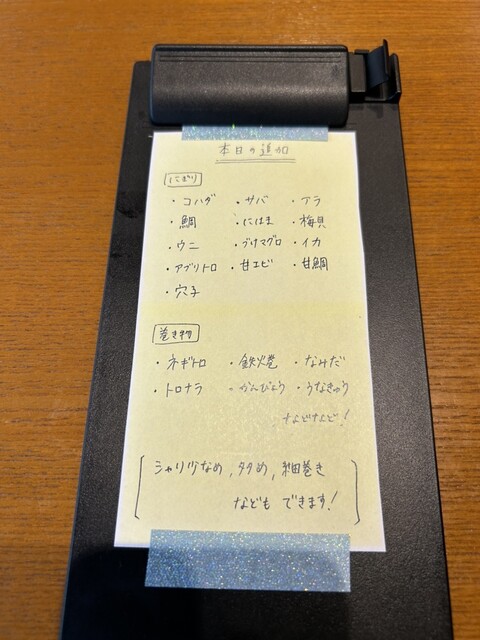 本日の追加
にぎり
・コハダ ・サバ ・アラ
・鯛 ・にはま ・梅貝
・ウニ ・ヅケマグロ ・イカ
・アブリトロ ・甘エビ ・甘鯛
・穴子
巻き物
・ネギトロ ・鉄火巻 ・なみだ
・トロナラ ・かんぴょう ・うなきゅう
などなど!
シャリ少なめ,多め,細巻き
などもできます!